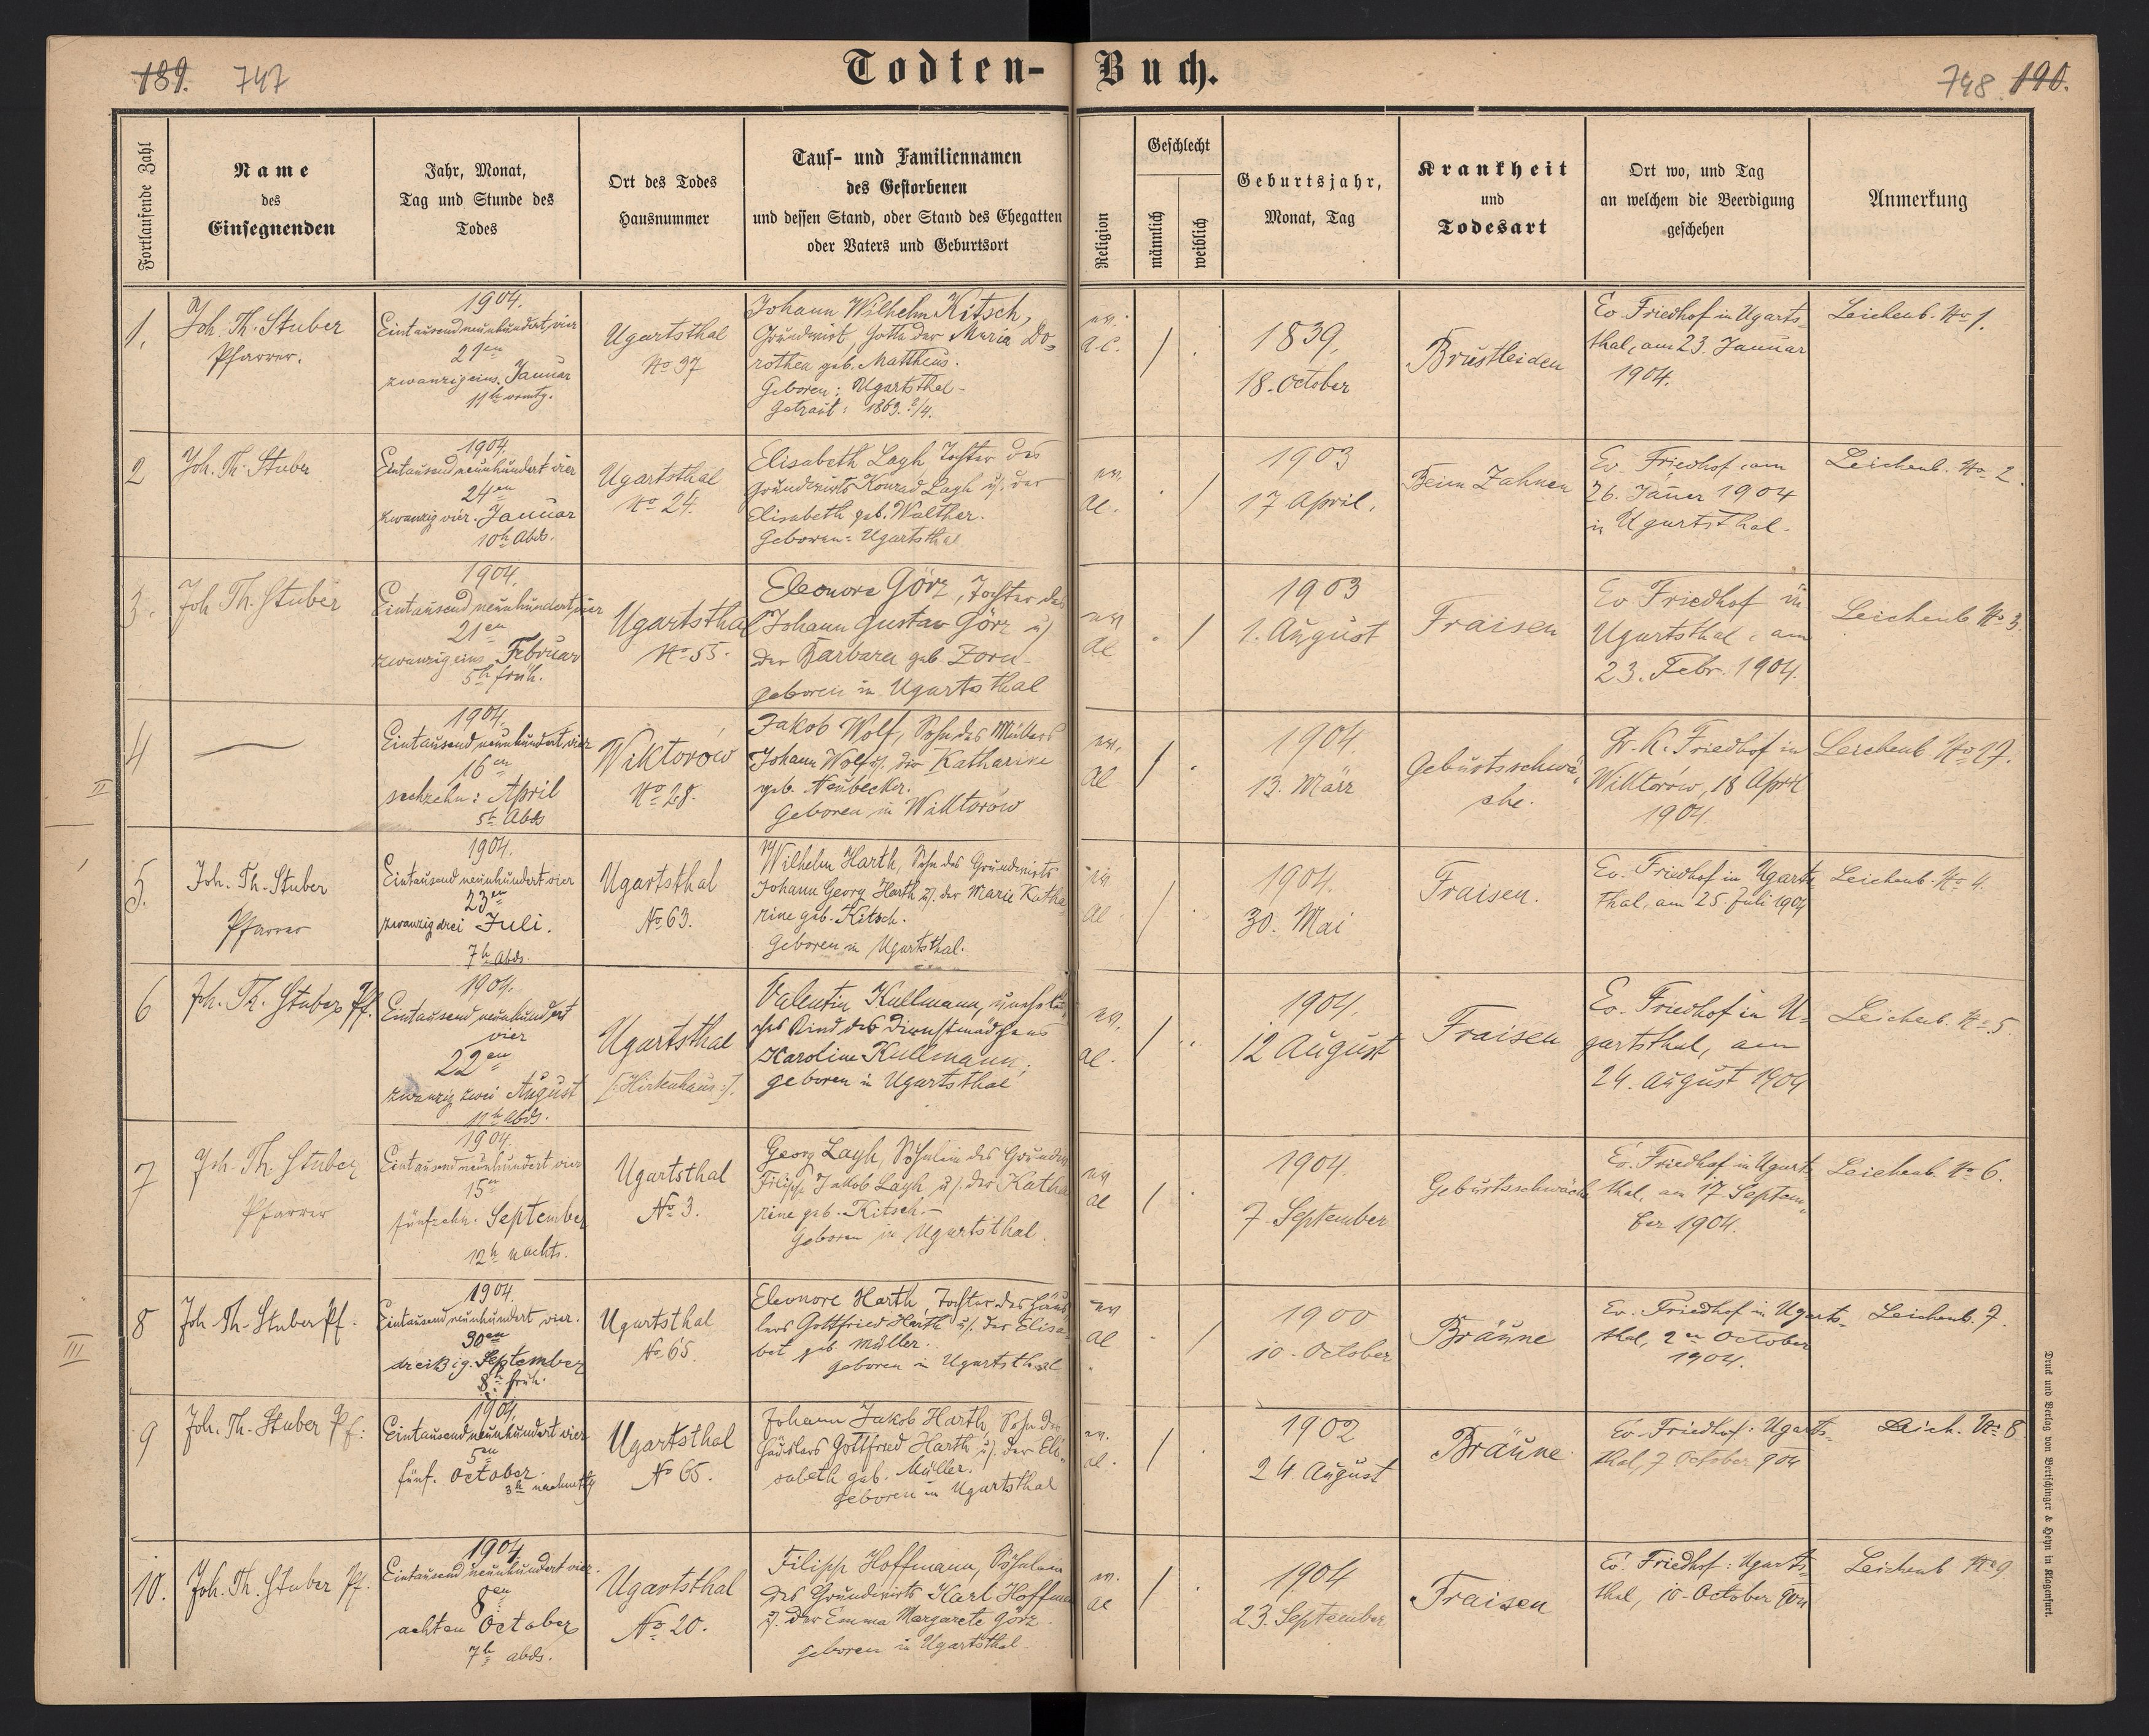 189. 747
Todten-Buch.
748 190.
Fortlaufende Zahl
Name
des
Einsegnenden
Jahr, Monat,
Tag und Stunde des
Todes
Ort des Todes
Hausnummer
Tauf- und Familiennamen
des Gestorbenen
und dessen Stand, oder Stand des Ehegatten
oder Vaters und Geburtsort
Religion
Geschlecht
männlich
weiblich
Geburtsjahr,
Monat, Tag
Krankheit
und
Todesart
Ort wo, und Tag
an welchem die Beerdigung
geschehen
Anmerkung
1.
Joh. Th. Stuber
Pfarrer.
1904.
Eintausendneunhundert vier
21en
zwanzigeins. Januar
11h vormtg.
Ugartsthal
No 37
Johann Wilhelm Kitsch,
Grundwirt, Gatte der Maria Do=
rothea geb. Mattheus.
Geboren: Ugartsthal-
Getraut: 1863. 2/4.
ev.
a.c.
/
1839,
18. October
Brustleiden
Ev Friedhof in Ugarts=
thal, am 23. Januar
1904.
Leichenb. No 1.
2
Joh. Th. Stuber
1904
Eintausendneunhundert vier
24en
zwanzig vier. Januar
10h Abds.
Ugartsthal
No 24.
Elisabeth Layh, Tochter des
Grundwirts Konrad Layh u. der
Elisabeth geb. Walther.
Geboren: Ugartsthal
ev.
ac.
/
1903
17 April.
Beim Zahnen
Ev. Friedhof, am
26. Jäner 1904
in Ugartsthal.
Leichenb. No 2.
3.
Joh Th. Stuber
1904.
Eintausend neunhundert vier
21en
zwanzigeins Februar
5h früh.
Ugartsthal
No 55.
Eleonore Görz, Tochter des
Johann Gustav Görz u.
der Barbara geb. Zorn-
geboren in Ugartsthal
ev
ac
/
1903
1. August
Fraisen
Ev Friedhof in
Ugartsthal, am
23. Febr. 1904.
Leichenb No 3.
II
4
1904.
Eintausend neunhundert vier
16en
sechzehn: April
5h Abds
Wiktorów
No 28.
Jakob Wolf, Sohn des Müllers
Johann Wolf u. der Katharine
geb. Neubecker.
Geboren in Wiktorów
ev.
ac
/
1904.
13. März
Geburtsschwä=
che.
Gr. K. Friedhof in
Wiktorów, 18 April
1904.
Leichenb No 17.
5.
Joh. Th. Stuber
Pfarrer
1904.
Eintausend neunhundert vier
23en
zwanzigdrei Juli.
7h Abds.
Ugartsthal
No 63.
Wilhelm Harth, Sohn des Grundwirts
Johann Georg Harth u. der Marie Katha
rine geb. Kitsch.
Geboren in Ugartsthal.
ev
ac
/
1904.
30. Mai
Fraisen.
Ev. Friedhof in Ugarts
thal, am 25. Juli 1904
Leichenb. No 4.
6
Joh. Th. Stuber Pf.
1904.
Eintausend neunhundert
vier
22en
zwanzig zwei August
11h Abds.
Ugartsthal
[:Hirtenhaus:].
Valentin Kullmann, uneheli
ches Kind des Dienstmädchens
Karoline Kullmann;
geboren in Ugartsthal
ev.
ac.
/
1904.
12 August
Fraisen
Ev. Friedhof in U=
gartsthal, am
24. August 1904
Leichenb. No 5.
7
Joh. Th. Stuber
Pfarrer
1904.
Eintausend neunhundert vier
15en
fünfzehn. September
12h nachts.
Ugartsthal
No 3.
Georg Layh, Söhnlein des Grundw
Filipp Jakob Layh u. der Katha
rine geb. Kitsch.-
Geboren in Ugartsthal.
ev
ac
/
1904.
7. September
Geburtsschwäche
Ev. Friedhof in Ugarts
thal, am 17 Septem=
ber 1904.
Leichenb. No 6.
III
8
Joh Th. Stuber Pf.
1904.
Eintausend neunhundert vier.
30en
dreißig. September
8h früh.
Ugartsthal
No 65.
Eleonore Harth, Tochter des Häus
lers Gottfried Harth u. der Elisa=
bet geb. Müller.
geboren in Ugartsthal
ev
ac
/
1900
10. October
Bräune
Ev. Friedhof in Ugarts=
thal, 2en October
1904.
Leichenb. 7.
9
Joh. Th. Stuber Pf:
1904.
Eintausendneunhundert vier
5en
fünf. October.
3h nachmttg
Ugartsthal
No 65.
Johann Jakob Harth, Sohn des
Häuslers Gottfried Harth u. der Eli=
sabeth geb. Müller.
geboren in Ugartsthal
ev.
ac.
/
1902
24. August
Bräune
Ev. Friedhof: Ugarts=
thal, 7 October 904
Leich. No 8
10.
Joh. Th. Stuber Pf.
1904
Eintausend neunhundert vier.
8en
achten October
7h abds.
Ugartsthal
No 20.
Filipp Hoffmann, Söhnlein
des Grundwirts Karl Hoffmann
u. der Emma Margarete Görz.
geboren in Ugartsthal-
ev.
ac
/
1904
23. September
Fraisen
Ev. Friedhof: Ugarts=
thal, 10. October 904
Leichenb No 9
Druck und Verlag von Bertschinger & Heyn in Klagenfurt.